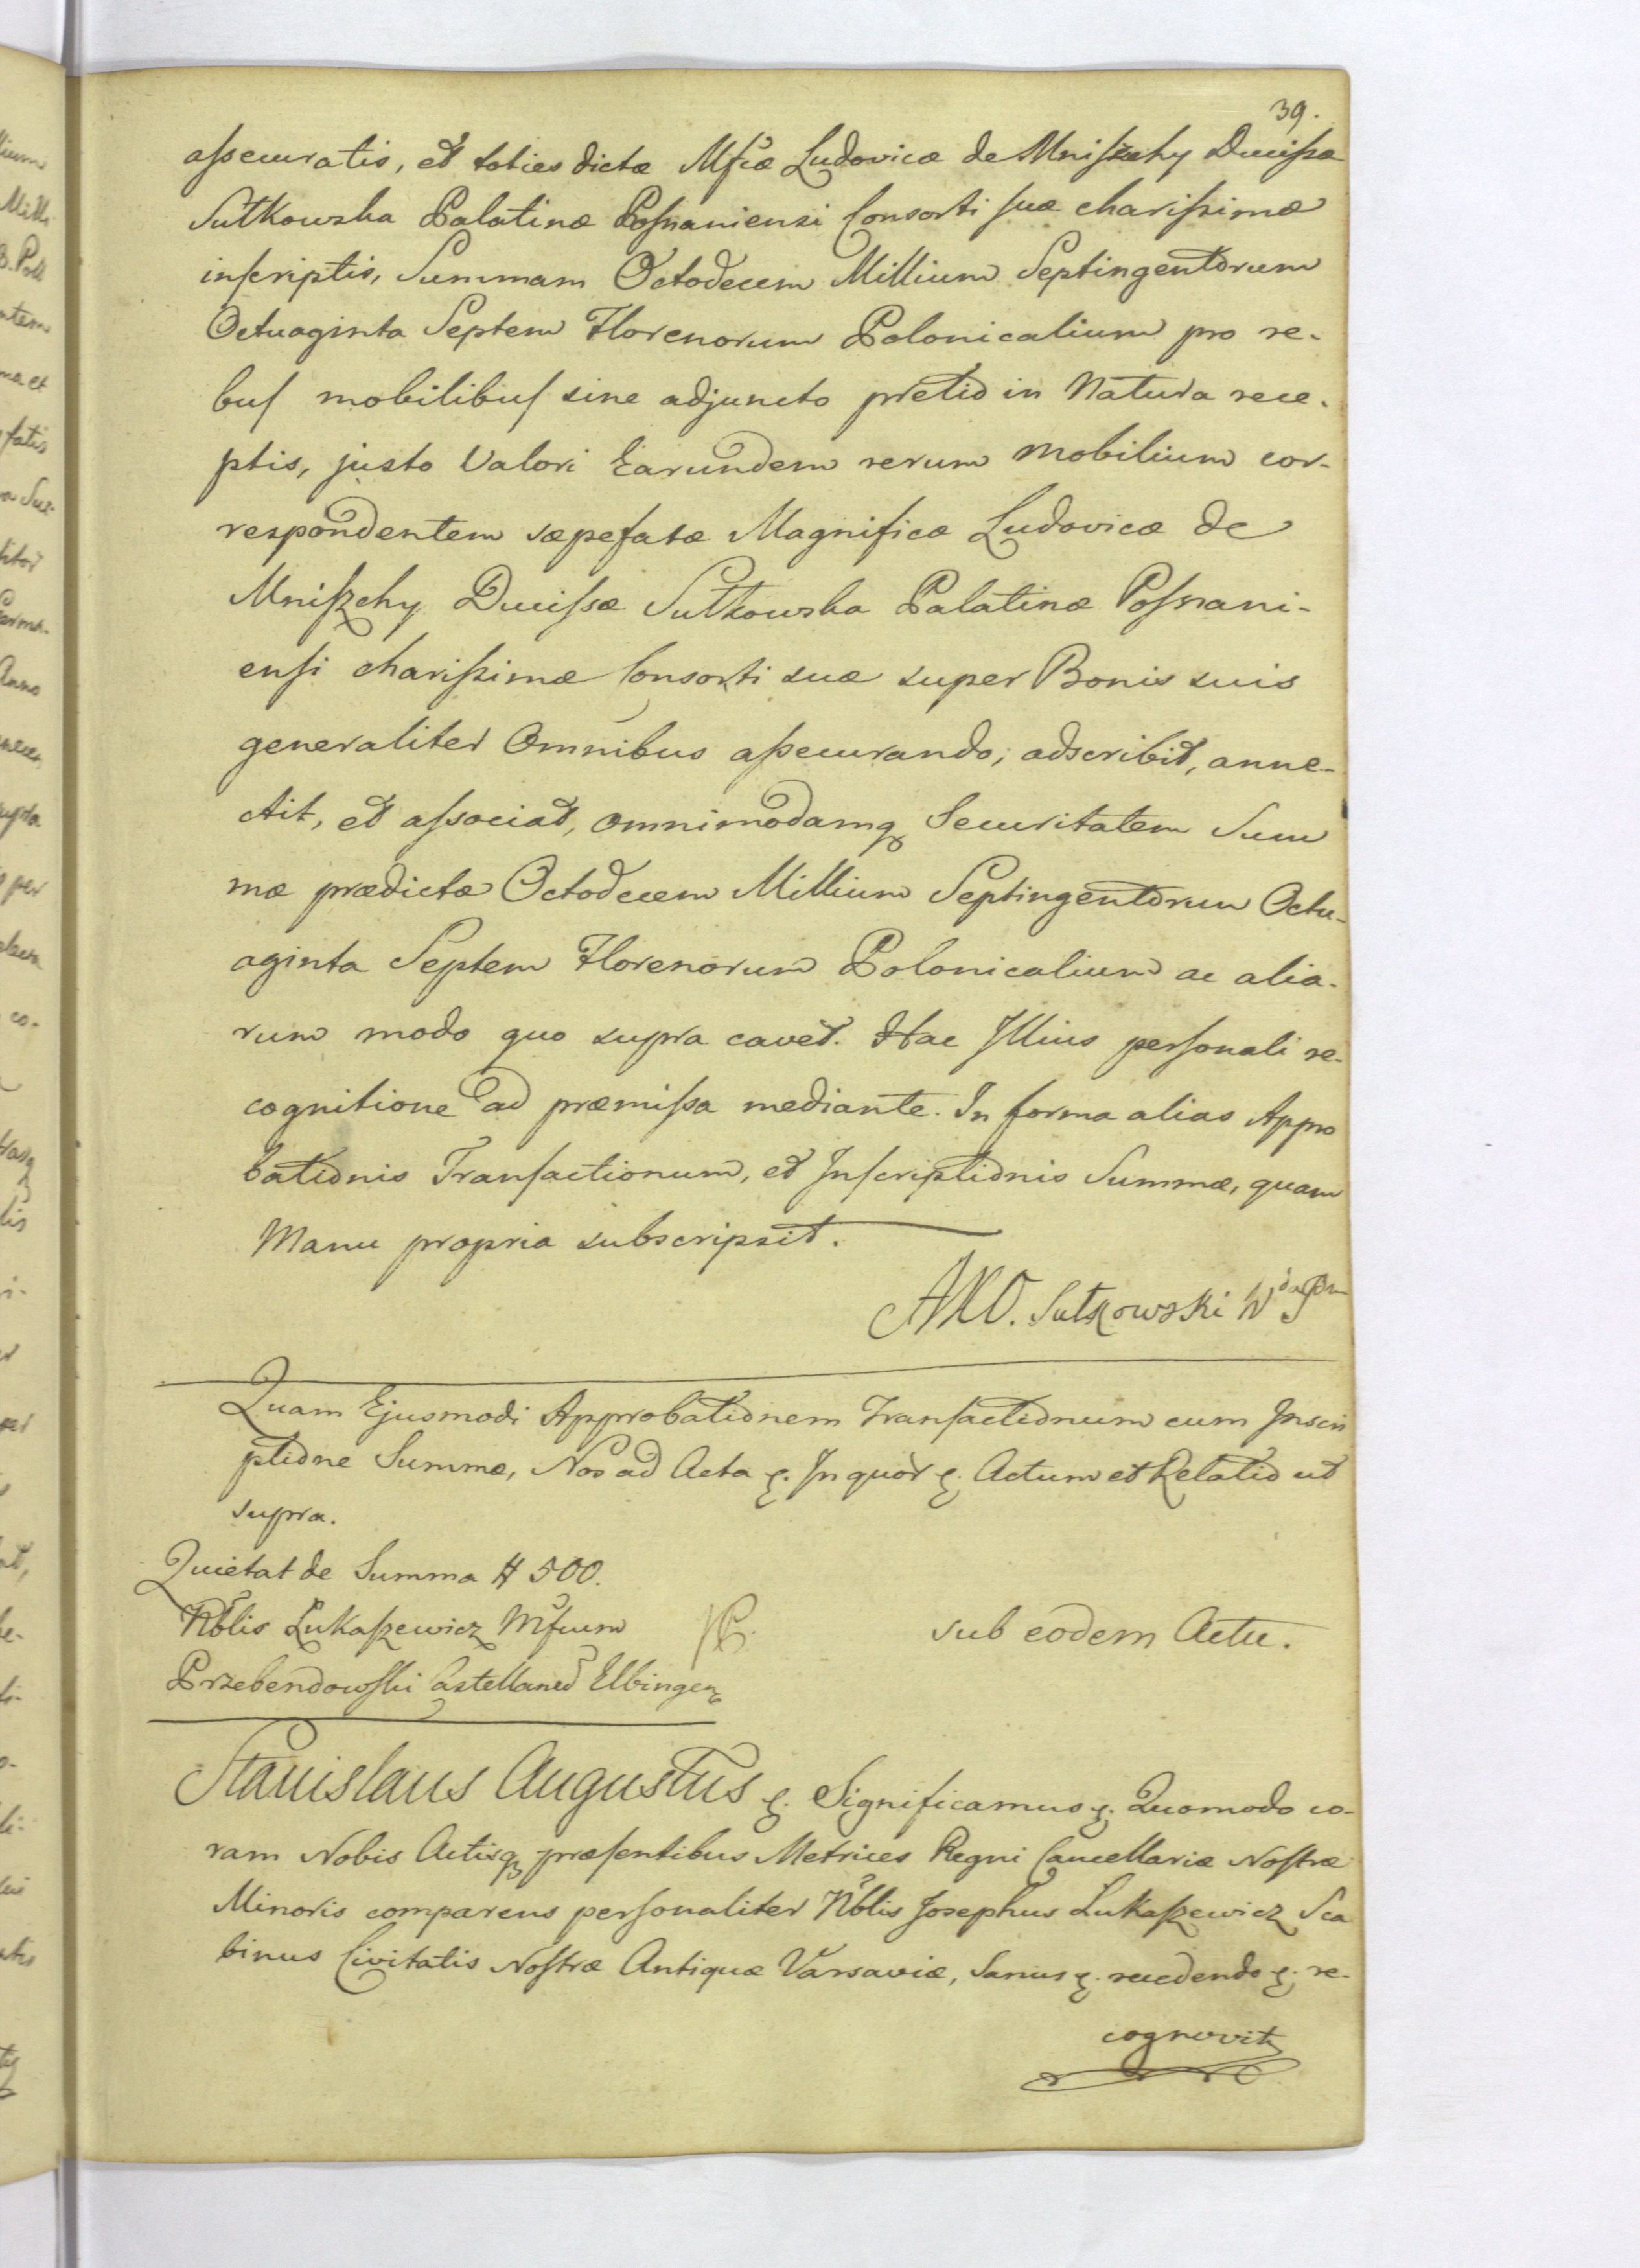 39.
assecuratis, et toties dictæ Mfcæ Ludovicæ de Mniszchy Ducissæ
Sułkowska Palatinæ Posnaniensi Consorti suæ charissimæ
inscriptis, Summam Octodecem Millium Septingentorum
Octuaginta Septem Florenorum Polonicalium pro re-
bus mobilibus sine adjuncto pretio in Natura rece-
ptis, justo Valori Earundem rerum mobilium cor-
respondentem sæpefatæ Magnificæ Ludovicæ de
Mniszchy Ducissæ Sułkowska Palatinæ Posnani-
ensi charissimæ Consorti suæ super Bonis suis
generaliter Omnibus assecurando, adscribit, anne-
ctit, et associat, omnimodamq Securitatem Sum
mæ prædictæ Octodecem Millium Septingentorum Octu-
aginta Septem Florenorum Polonicalium ac alia-
rum modo quo supra cavet. Hac Illius personali re-
cognitione ad præmissa mediante. In forma alias Appro
bationis Transactionum, et Inscriptionis Summæ, quam
Manu propria subscripsit.
Sułkowski
Quam Ejusmodi Approbationem Transactionum cum Inscri
ptione Summæ, Nos ad Acta &. In quor &. Actum et Relatio ut
supra.
Quietat de Summa # 500.
Nblis Łukaszewicz Mfcum
Przebendowski Castellaneu Elbingen
sub eodem Actu.
Stanislaus Augustus &. Significamus &. Quomodo co-
ram Nobis Actisq præsentibus Metrices Regni Cancellariæ Nostræ
Minoris comparens personaliter Nblis Josephus Łukaszewicz Sca
binus Civitatis Nostræ Antiquæ Varsaviæ, Sanus &. recedendo &. re-
cognovit